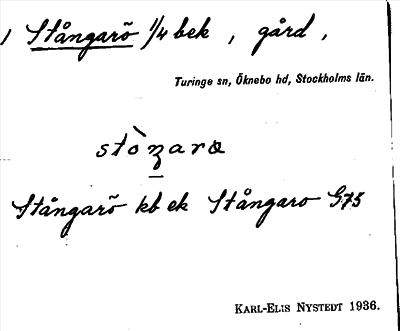 1 Stångarö 1/4 bek , gård ,
Turinge sn, Öknebo hd, Stockholms län.
Stångarö kb ek Stångaro G75
KARL-ELIS NYSTEDT 1936.